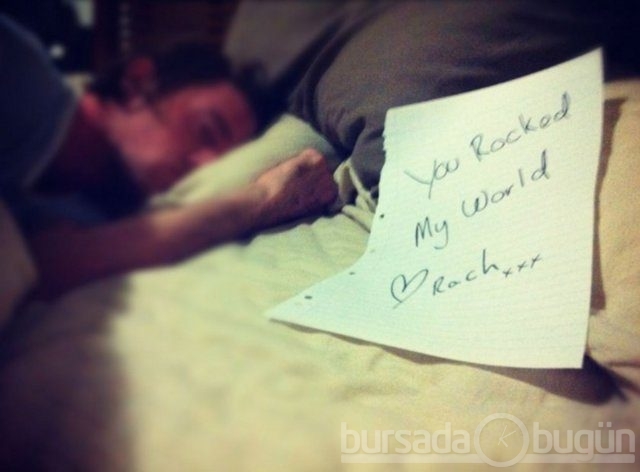 You Rocked
My World
♡ Rach xxx
bursadabugün